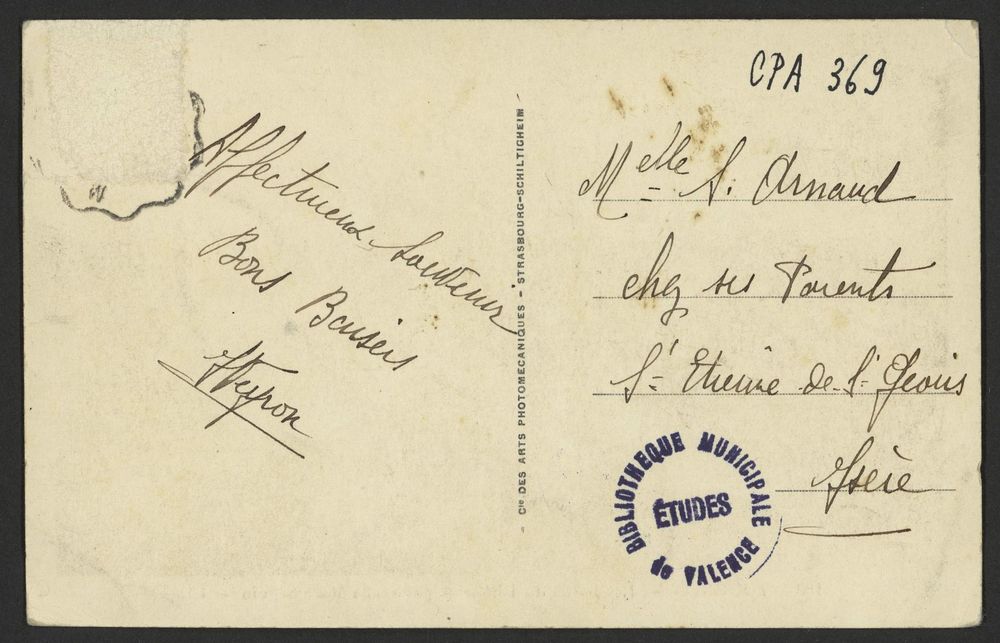 CPA 369
Affectueux Souvenir
Bons Baisers
Veyron
Cie DES ARTS PHOTOMECANIQUES - STRASBOURG-SCHILTIGHEIM -
Melle S. Arnaud
chez ses Parents
St Etienne de St Geoirs
Isère
BIBLIOTHEQUE MUNICIPALE
ÉTUDES
de VALENCE